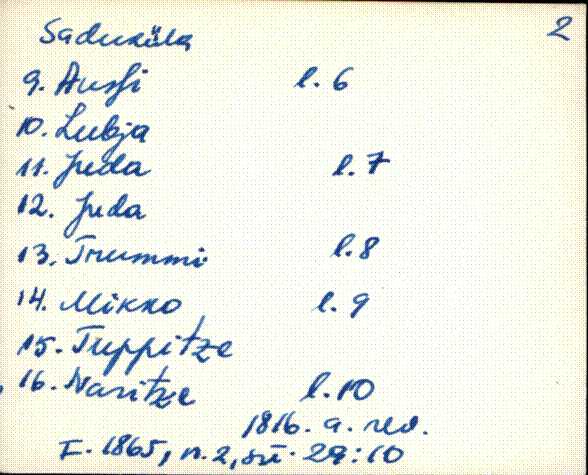 Saduküla 2
9. Aussi l. 6
10. Lubja
11. Juda l. 7
12. Juda
13. Trummi l. 8
14. Mikko l. 9
15. Tuppitze
16. Naritze l. 10
1816. a. rev.
F. 1865, n. 2, sü. 29:10